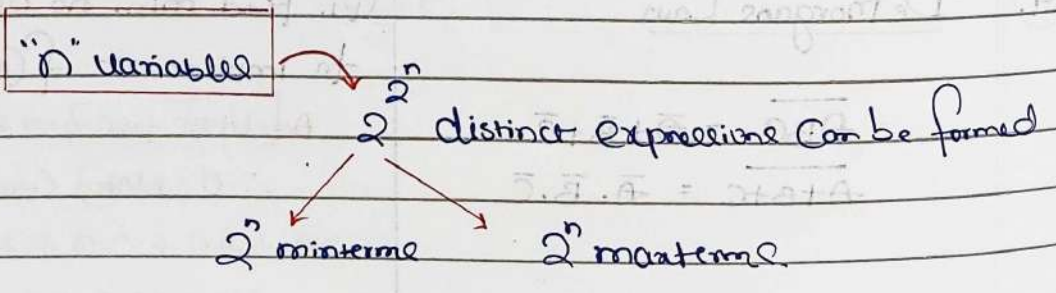 "n" variables
2^2^n distinct expressions can be formed
2^n minterms 2^n maxterms